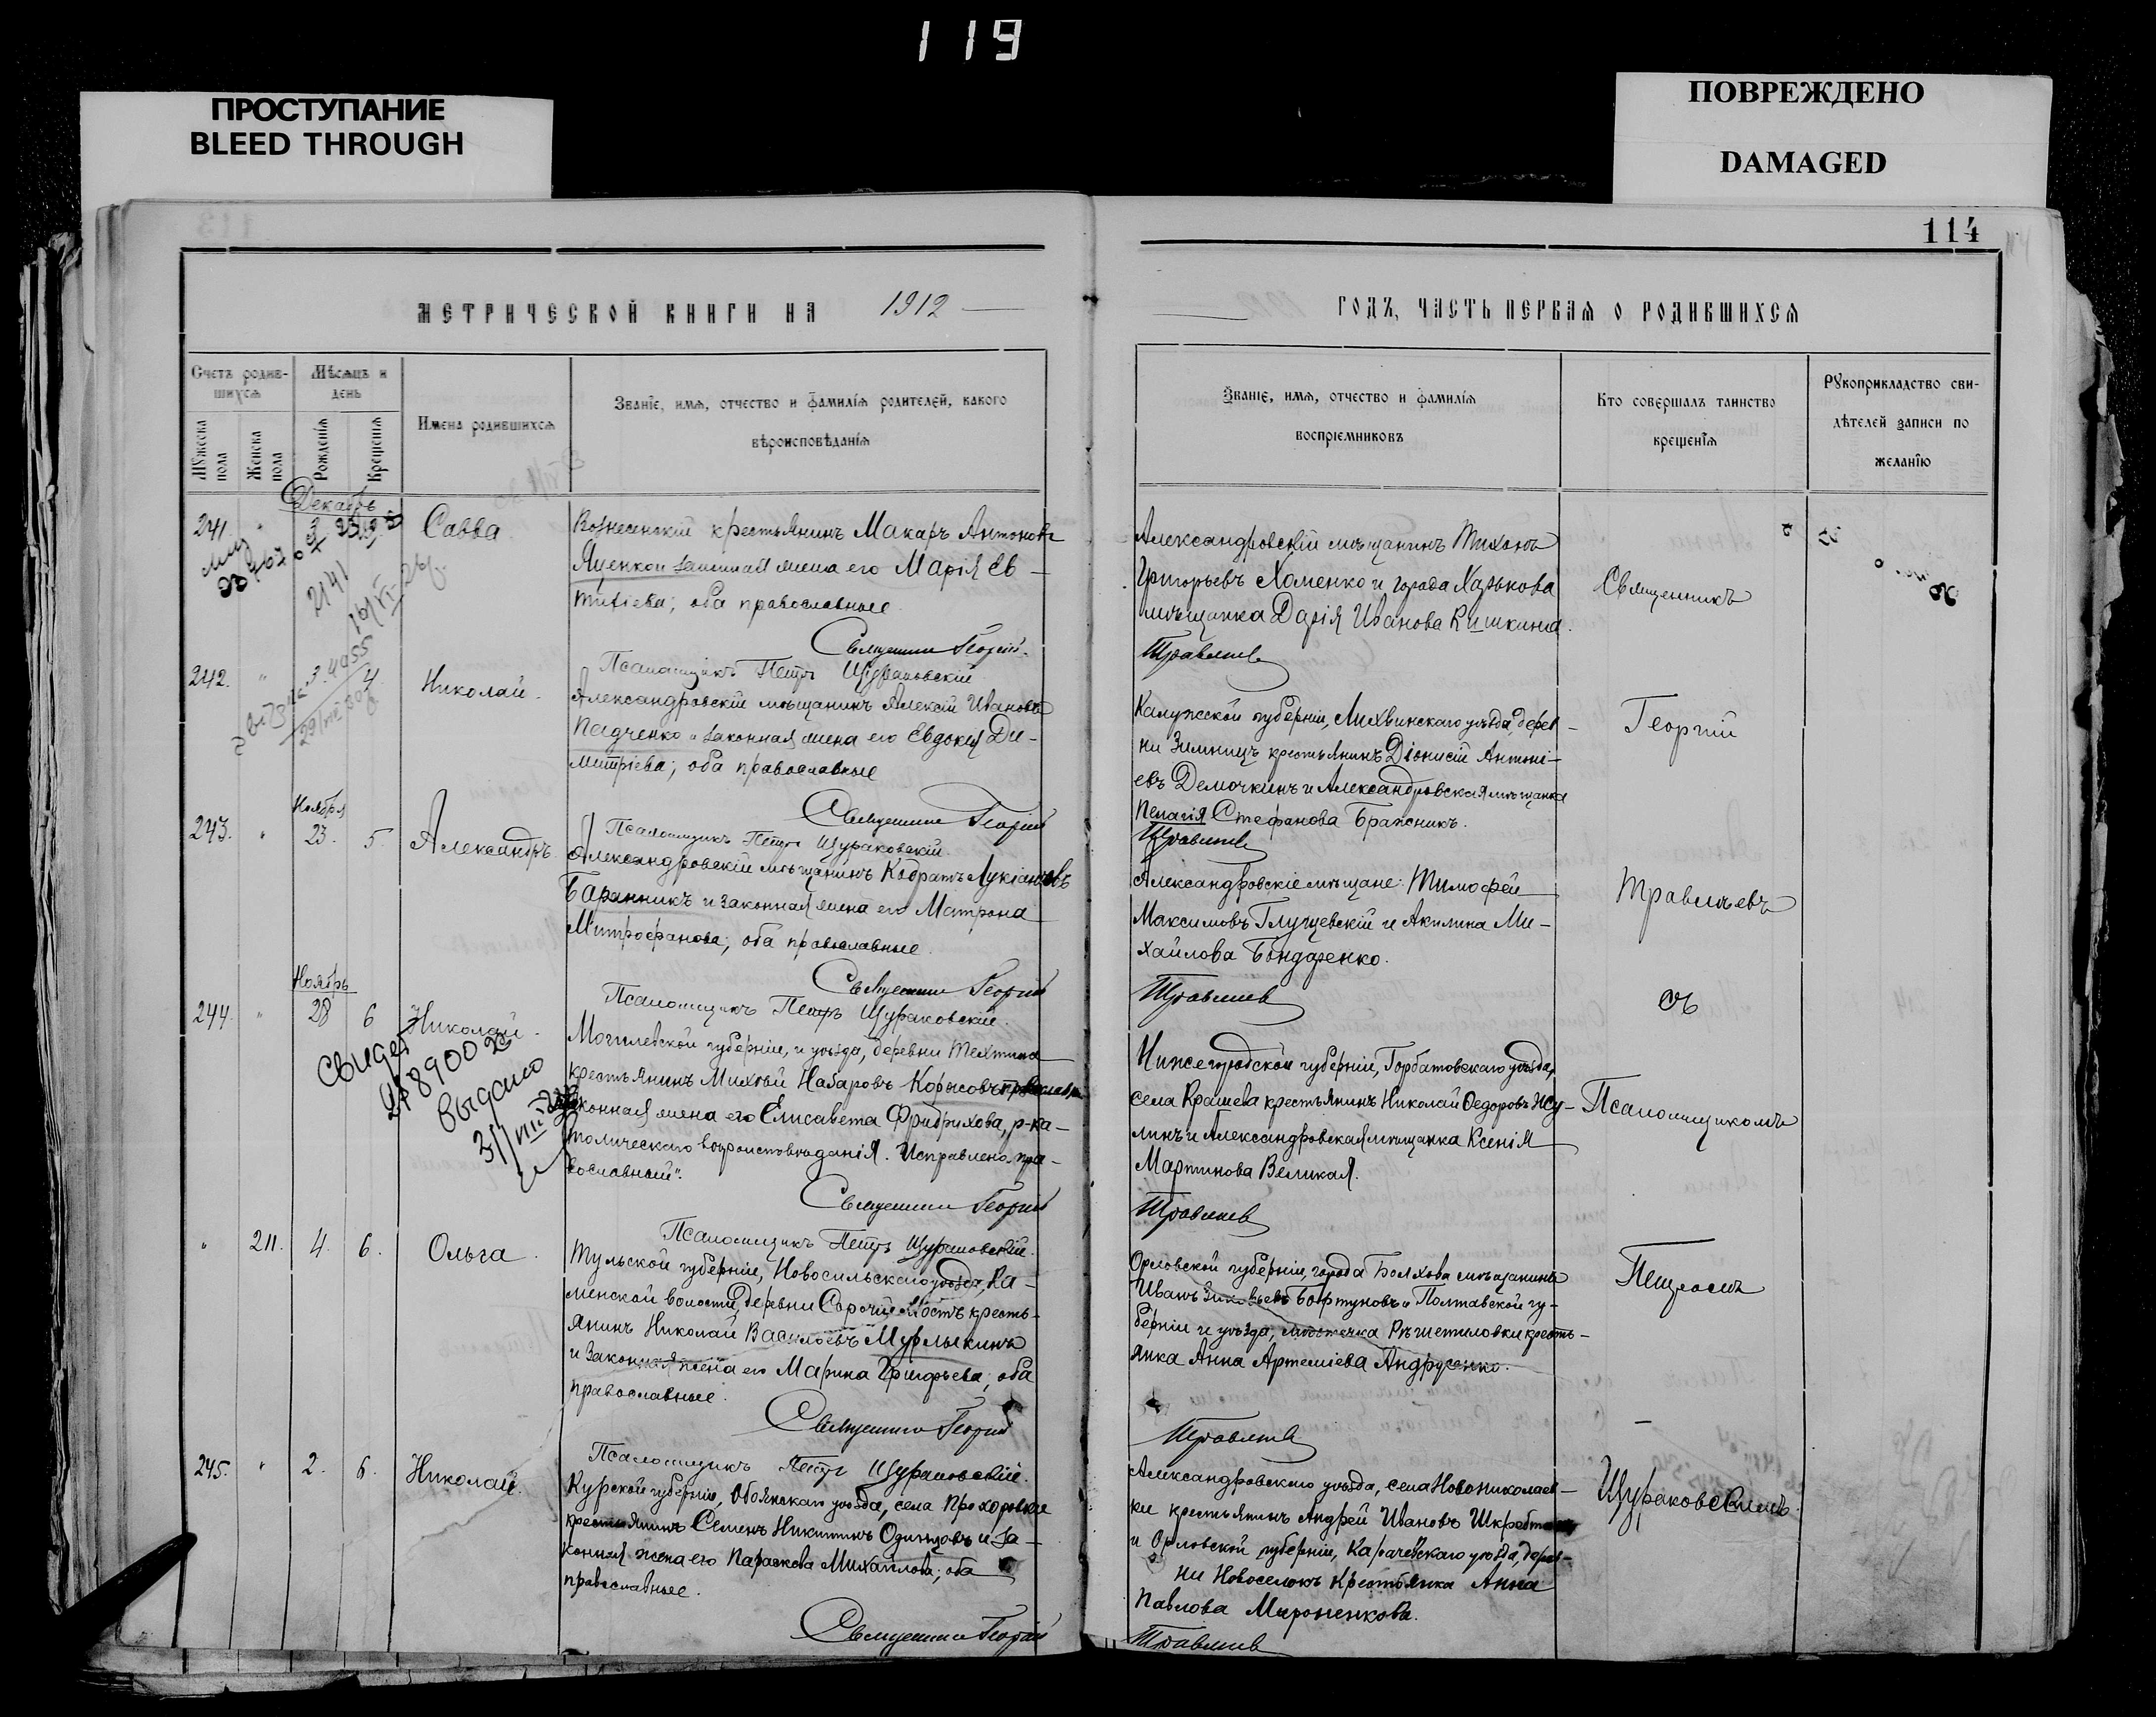 119
ПРОСТУПАНИЕ
BLEED THROUGH
ПОВРЕЖДЕНО
DAMAGED
114
МЕТРИЧЕСКОЙ КНИГИ НА 1912
ГОДЪ, ЧАСТЬ ПЕРВАЯ О РОДИВШИХСЯ
Счетъ родив-
шихся
Мѣсяцъ и
день
Имена родившихся
Званіе, имя, отчество и фамилія родителей, какого
вѣроисповѣданія
Мужеска пола
Женска пола
Рожденія
Крещенія
Званіе, имя, отчество и фамилія
воспріемниковъ
Кто совершалъ таинство
крещенія
Рукоприкладство сви-
дѣтелей записи по
желанію
Декабрь
241. Савва
Вознесенскій крестьянинъ Макаръ Антоновъ
Яценко и законная жена его Марія Ев-
тиѳіева; оба православные.
Священникъ Георгій
Псаломщикъ Петръ Щураковскій
Александровскій мѣщанинъ Тихонъ
Григорьевъ Хоменко и города Харькова
мѣщанка Дарія Иванова Кишкина.
Травлѣевъ
Священникъ
2141
16/VI-26г.
242. " 3. 4. Николай.
4955
29/VIII 30
Александровскій мѣщанинъ Алексій Ивановъ
Падченко и законная жена его Евдокія Ди-
митріева; оба православные
Священникъ Георгій
Псаломщикъ Петръ Щураковскій.
Калужской губерніи, Лихвинскаго уѣзда, дерев-
ни Зимницъ крестьянинъ Діонисій Антоні-
евъ Демочкинъ и Александровская мѣщанка
Пелагія Стефанова Бражникъ.
Травлѣевъ
Георгій
Ноября
243. " 23. 5. Александръ
Александровскій мѣщанинъ Кодратъ Лукіановъ
Баранникъ и законная жена его Матрона
Митрофанова; оба православные.
Священникъ Георгій
Псаломщикъ Петръ Щураковскій.
Александровскіе мѣщане: Тимофей
Максимовъ Глущевскій и Акилина Ми-
хайлова Бондаренко.
Травлѣевъ
Травлѣевъ
Ноябрь
244. " 28 6 Николай.
Свидет
№ 8900
выдано
31/VIII
Могилевской губерніи, и уѣзда, деревни Техтина
крестьянинъ Михей Набаровъ Корысовъ
законная жена его Елисавета Фридрихова, р-ка-
толическаго вѣроисповѣданія. Исправлено „пра-
вославный".
Священникъ Георгій
Псаломщикъ Петръ Щураковскій.
Нижегородской губерніи, Горбатовскаго уѣзда,
села Крашева крестьянинъ Николай Ѳедоровъ Жу-
линъ и Александровская мѣщанка Ксенія
Мартинова Великая.
Травлѣевъ
съ
Псаломщикомъ
" 211. 4. 6. Ольга.
Тульской губерніи, Новосильскаго уѣзда, Ка-
менской волости, деревни Сорочій Мостъ кресть-
янинъ Николай Васильевъ Мурлыкинъ
и законная жена его Марина Григорьева; оба
православные.
Священникъ Георгій
Псаломщикъ Петръ Щураковскій.
Орловской губерніи, города Болхова мѣщанинъ
Иванъ Бофтуновъ и Полтавской гу-
берніи и уѣзда, мѣстечка Рѣшетиловки кресть-
янка Анна Артеміева Андрусенко.
Травлѣевъ
Петромъ
245. " 2. 6. Николай.
Курской губерніи, Обоянскаго уѣзда, села Прохоровки
крестьянинъ Семенъ Никитинъ Одинцовъ и за-
конная жена его Параскева Михайлова; оба
православные.
Священникъ Георгій
Александровскаго уѣзда, села Новониколаев-
ки крестьянинъ Андрей Ивановъ
и Орловской губерніи, Карачевскаго уѣзда, дерев-
ни Новоселокъ крестьянка Анна
Павлова Мироненкова.
Травлѣевъ
Щураковскимъ.